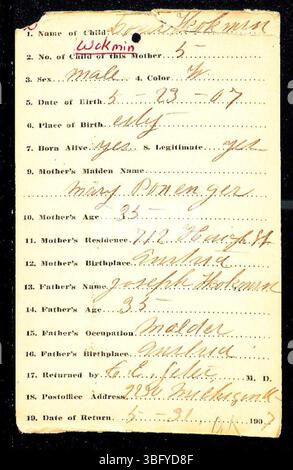 1. Name of Child
Wokmin
2. No. of Child of this Mother 5
3. Sex male 4. Color W.
5. Date of Birth 5-23-07
6. Place of Birth city
7. Born Alive? yes 8. Legitimate yes
9. Mother's Maiden Name
Mary
10. Mother's Age 35
11. Mother's Residence 712
12. Mother's Birthplace Austria
13. Father's Name Joseph
14. Father's Age 35
15. Father's Occupation Molder
16. Father's Birthplace Austria
17. Returned by C. E. M. D.
18. Postoffice Address
19. Date of Return 5-31 1907